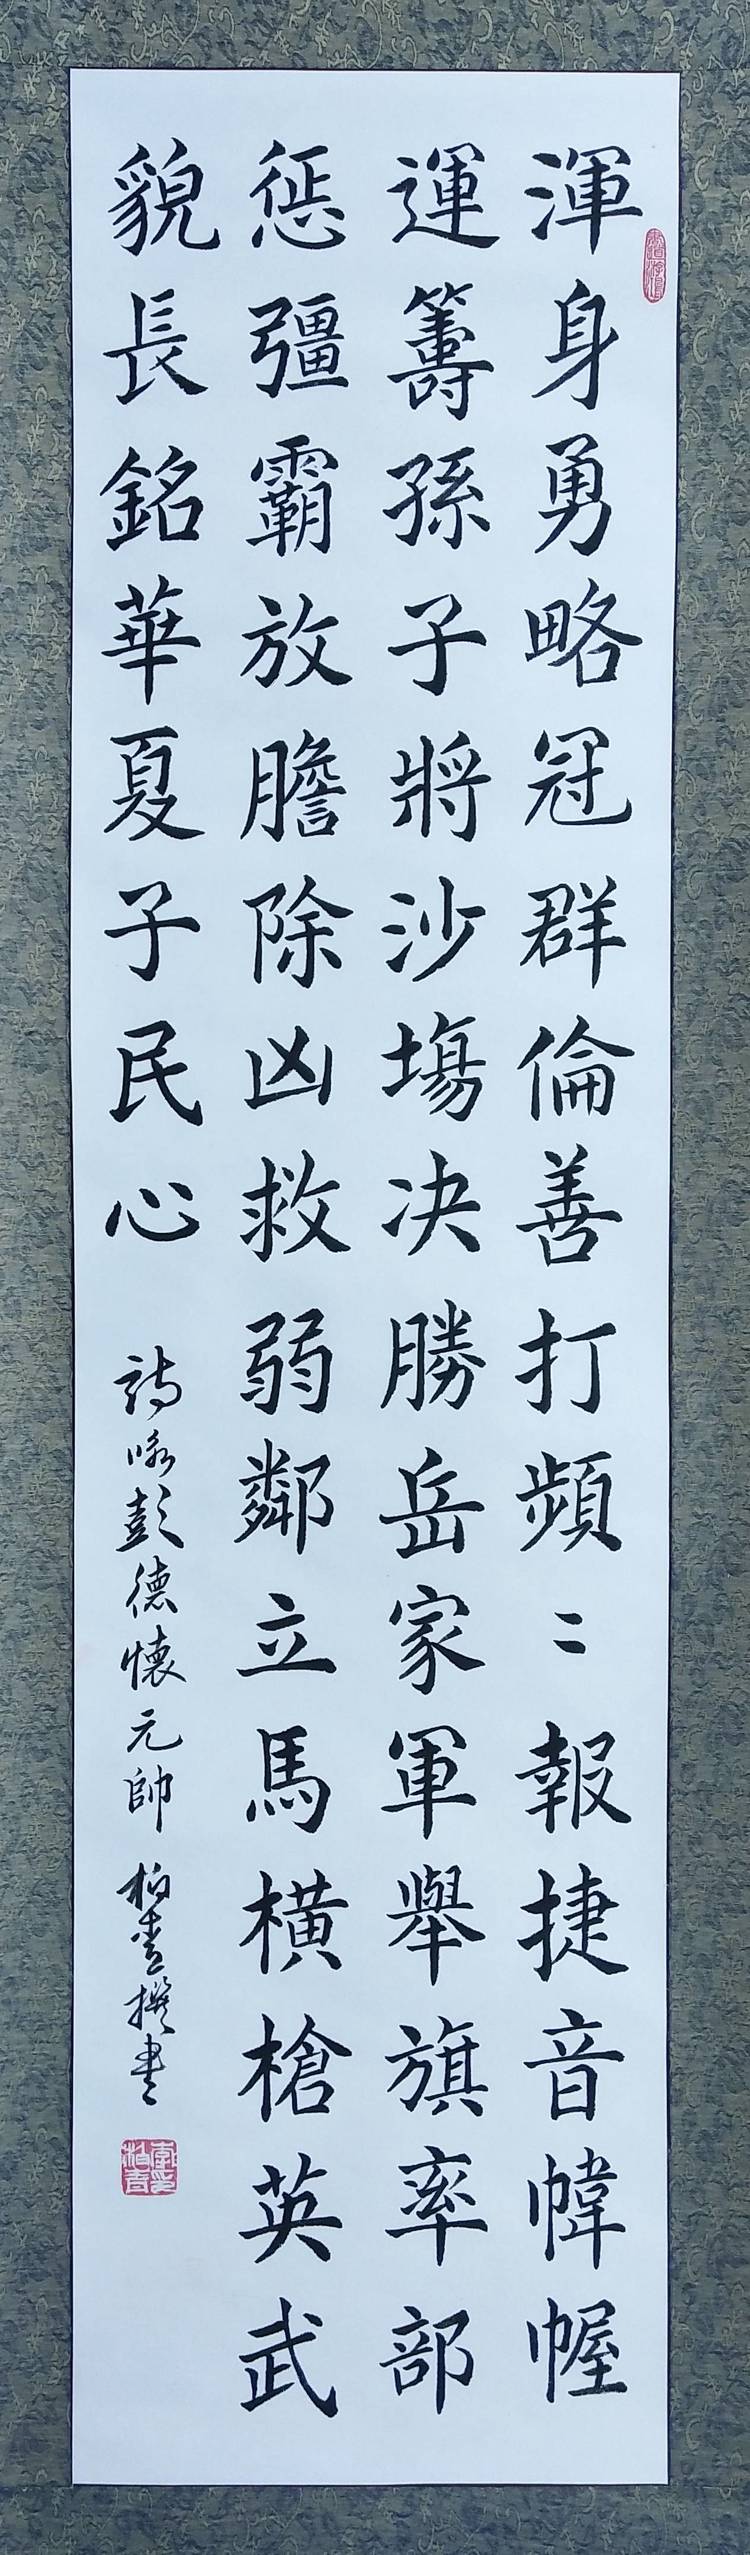 渾身勇略冠群倫善打頻〻報捷音幃幄
運籌孫子將沙塲决勝岳家軍舉旗率部
惩彊霸放膽除凶救弱鄰立馬橫槍英武
貌長銘華夏子民心
詩咏彭德懷元帥 柏青撰書